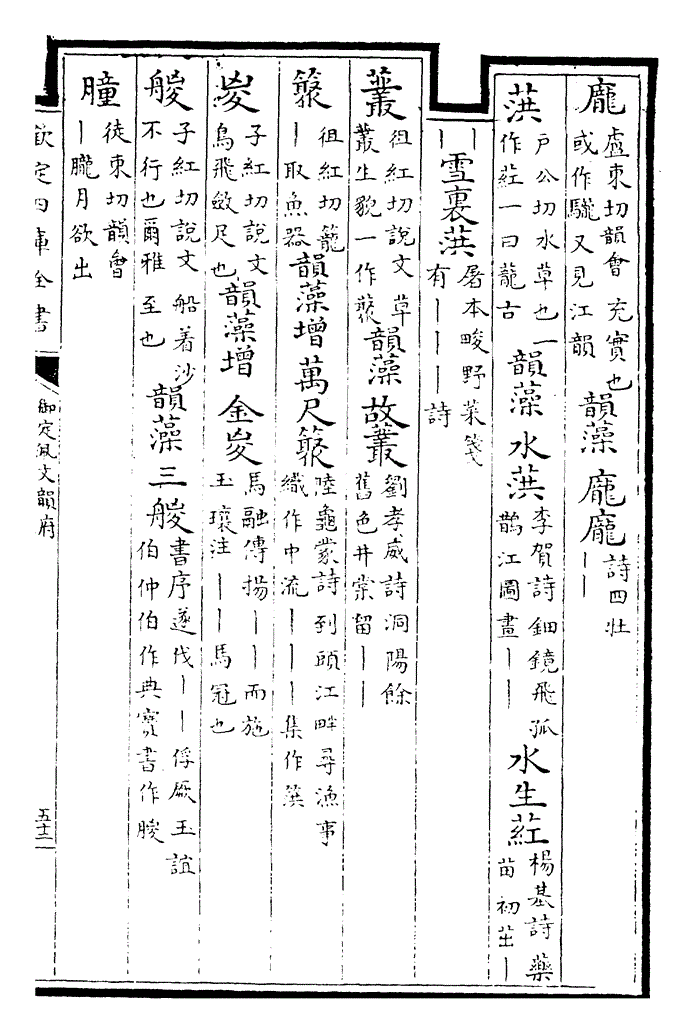 龐盧東切韻會充實也或作驡又見江韻韻藻龐龐詩四壯｜｜
渱戶公切水草也一作葒一曰蘢古韻藻水渱李賀詩鈿鏡飛孤鵲江圖畫｜｜水生葒楊基詩藥苗初茁｜
｜｜雪裏渱屠本畯野菜箋有｜｜｜詩
叢徂紅切說文草叢生貌一作藂韻藻故叢劉孝威詩洞陽餘舊色井棠留｜｜
簇徂紅切籠｜取魚器韻藻增萬尺簇陸龜蒙詩到頭江畔尋漁事織作中流｜｜｜集作篊
㚇子紅切說文鳥飛斂足也韻藻增金㚇馬融傳揚｜｜而施玉瓖注｜｜馬冠也
艐子紅切說文船着沙不行也爾雅至也韻藻三艐書序遂伐｜｜俘厥玉誼伯仲伯作典寶書作朡
朣徒東切韻會｜朧月欲出
欽定四庫全書
御定佩文韻府
五十三